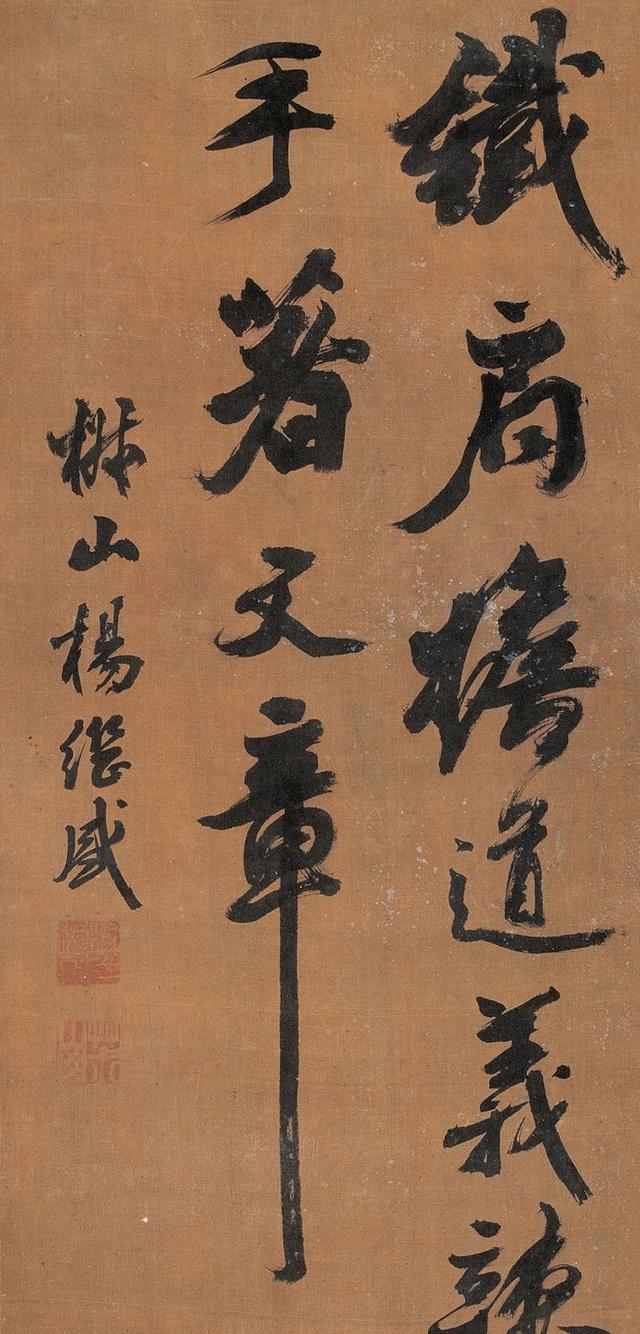 鐵肩擔道義辣
手著文章
椒山楊継盛